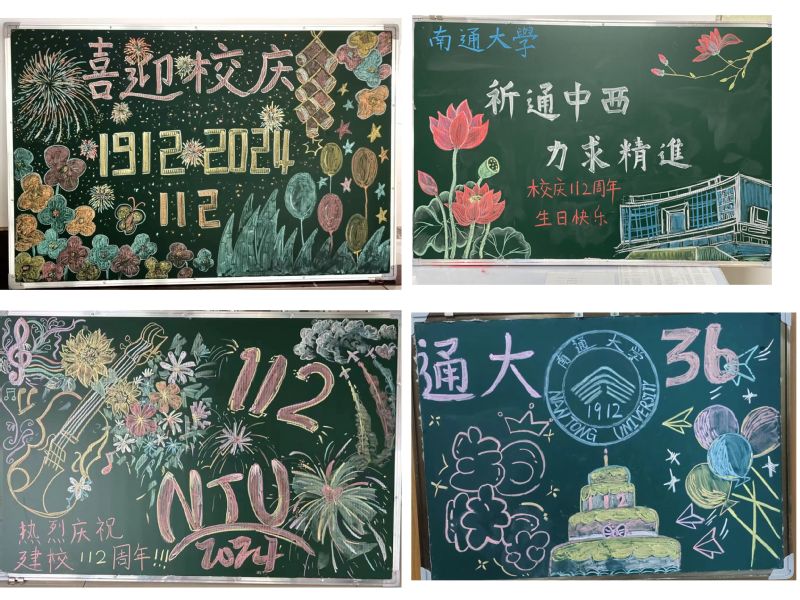 喜迎校庆
1912-2024
112
南通大學
祈通中西
力求精進
校庆112周年
生日快乐
112
NTU
2024
热烈庆祝
建校112周年!!!
通大
南通大学
1912
NANTONG UNIVERSITY
36
112